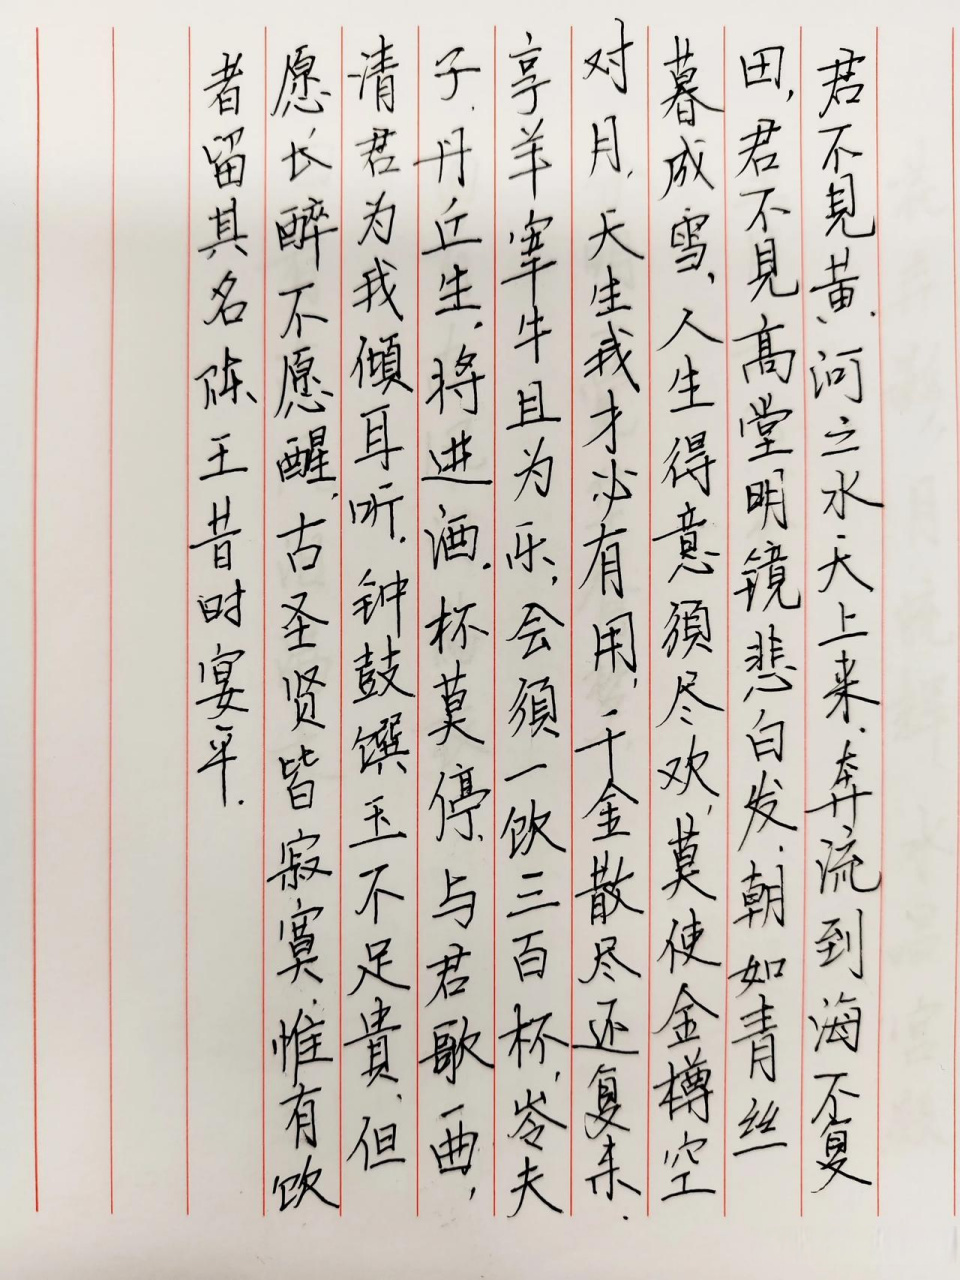 君不見黄.河之水天上来.奔流到海不复
田,君不見髙堂明镜悲白发.朝如青丝
暮成雪,人生得意須尽欢,莫使金樽空
对月,天生我才必有用,千金散尽还复来.
享羊宰牛且为乐,会須一饮三百杯,岑夫
子,丹丘生,将进酒.杯莫停,与君歌一曲,
清君为我傾耳听.钟鼓馔玉不足貴,但
愿长醉不愿醒,古圣贤皆寂寞.惟有饮
者留其名陈王昔时宴平.